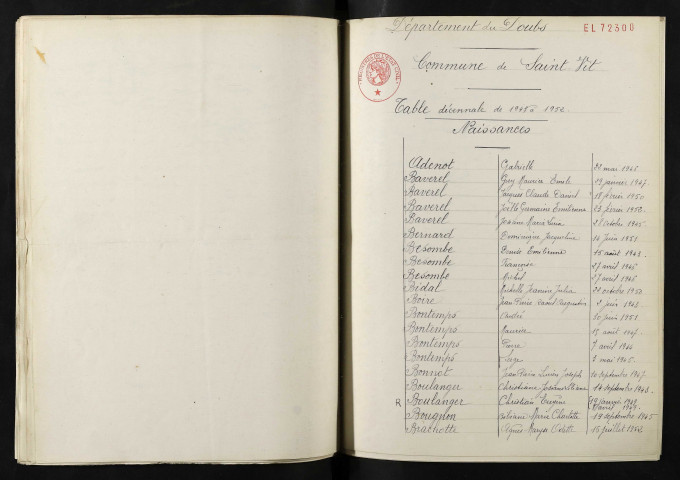 Département du Doubs
EL72300
Commune de Saint Vit
Table décennale de 1943 à 1952
Naissances
Adenot Gabrielle 22 mai 1945
Baverel Guy Maurice Emile 19 janvier 1947
Baverel Jacques Claude Daniel 18 février 1950
Baverel Joëlle Germaine Emilienne 22 février 1952
Baverel Marie 1945
Bernard Dominique Jacqueline 14 juin 1951
Besombe Emilienne 15 août 1943
Besombe Françoise 27 avril 1946
Besombe Michel 27 avril 1946
Bidal Michelle Jeannine Julia 22 octobre 1952
Boire Jean Pierre 2 juin 1943
Bontemps André 30 juin 1951
Bontemps Maurice 15 août 1947
Bontemps 7 avril 1944
Bontemps Serge 2 mai 1945
Bonnot Jean Marie Joseph 10 septembre 1947
Boulanger Christiane 14 septembre 1943
R Boulanger Christian Eugène 19 janvier 1949
avril 1949
Bougnon Marie Charlotte 19 septembre 1945
Brachotte Agnès Odette 15 juillet 1943